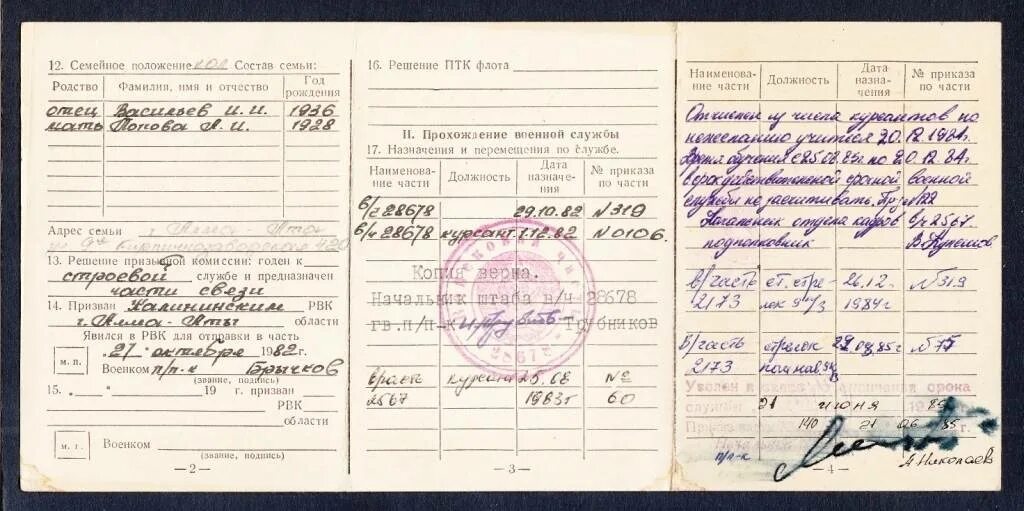 12. Семейное положение хол Состав семьи:
Родство
Фамилия, имя и отчество
Год рождения
отец Васильев И. И. 1936
мать Попова А. И. 1928
Адрес семьи г. Алма Ата
13. Решение призывной комиссии: годен к
строевой службе и предназначен
части связи
14. Призван Калининским РВК
г. Алма-Аты области
Явился в РВК для отправки в часть
м.п. 27 октября 1982 г.
Военком п/п-к Брычков
(звание, подпись)
15. „ “ 19 г. призван
РВК
области
м. п. Военком
(звание, подпись)
— 2 —
16. Решение ПТК флота
II. Прохождение военной службы
17. Назначения и перемещения по службе.
Наименование части
Должность
Дата назначения
№ приказа по части
в/ч 28678 29.10.82 №319
в/ч 28678 курсант 1.12.82 №0106.
Копия верна.
Начальник штаба в/ч 28678
гв.п/п-к Трубников
28678
в/часть курсант 25.08 №
2567 1983г 60
— 3 —
Наименование части
Должность
Дата назначения
№ приказа по части
Отчислен из числа курсантов по
нежеланию учиться 20.12.1984г.
Время обучения с 25.08.83г. по 20.12.84г.
в срок действительной срочной военной
службы не засчитывать. Пр. №122
Начальник отдела кадров в/ч 2567.
подполковник
в/часть ст. стре- 26.12. №519
2173 лок 1984г
в/часть стрелок 29.08.85г №77
2173
Уволен в запас по окончании срока
службы 21 июня 1985 г.
Приказ 140 21 06 85 г.
Начальник
п/п-к А. Николаев
— 4 —